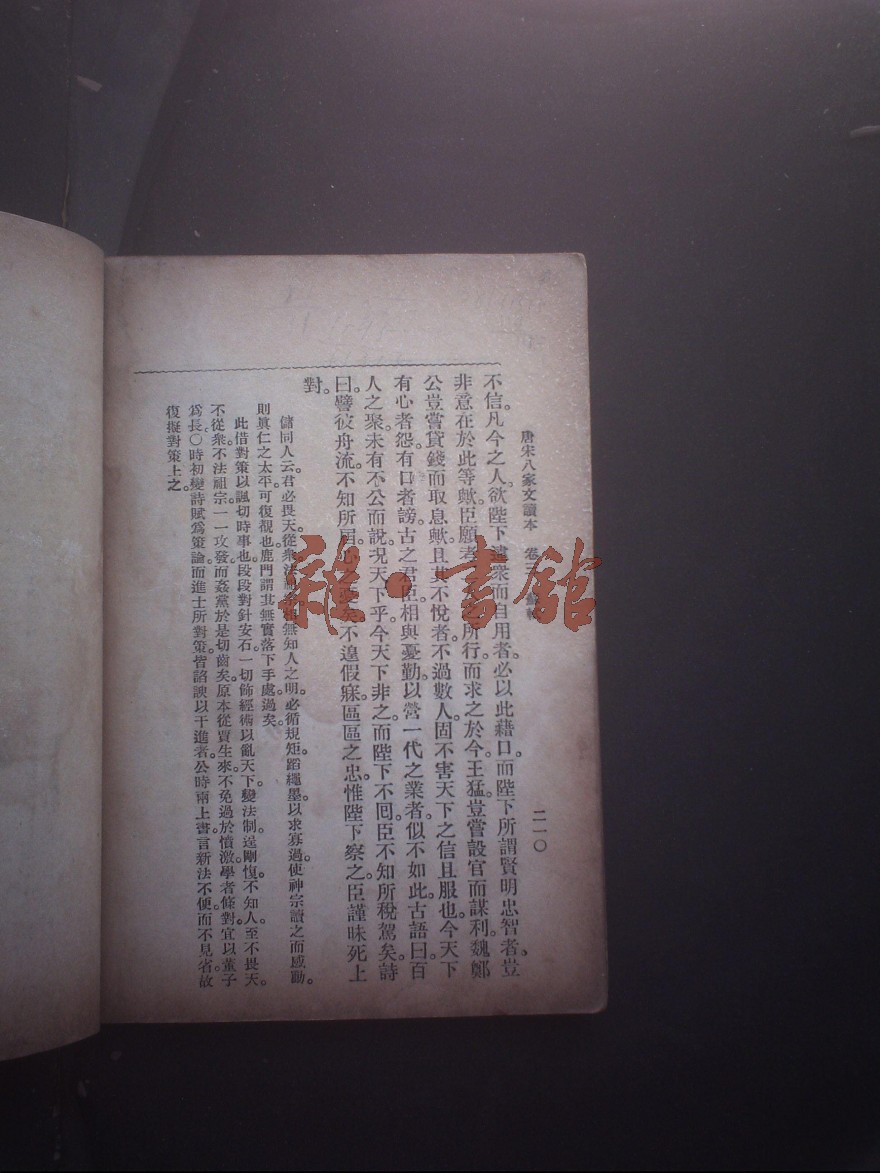 唐宋八家文讀本 卷三
二一〇
不信。凡今之人。欲陛下違衆而自用者。必以此藉口。而陛下所謂賢明忠智者。豈
非意在於此等歟。臣願 所行。而求之於今。王猛豈嘗設官而謀利。魏鄭
公豈嘗貸錢而取息歟。且其不悅者。不過數人。固不害天下之信且服也。今天下
有心者怨。有口者謗。古之君臣。相與憂勤。以營一代之業者。似不如此。古語曰。百
人之聚。未有不公。而說況天下乎。今天下非之。而陛下不回。臣不知所稅駕矣。詩
曰。譬彼舟流。不知所屆。心之憂矣。不遑假寐。區區之忠。惟陛下察之。臣謹昧死上
對。
儲同人云。君必畏天。從衆。法祖宗 無知人之明。必循規矩。蹈繩墨。以求寡過。使神宗讀之而感動。
則眞仁之太平。可復覩也。鹿門謂其無實落下手處。過矣。
此借對策以諷切時事也。段段對針安石。一切飾經術以亂天下。變法制。逞剛愎。不知人。至不畏天。
不從衆。不法祖宗。一一攻發。而姦黨於是切齒矣。原本從賈生來。不免過於憤激。學者條對。宜以董子
爲長。〇時初變詩賦爲策論。而進士所對策。皆諂諛以干進者。公時兩上書言新法不便。而不見省。故
復擬對策上之。
雜·書館